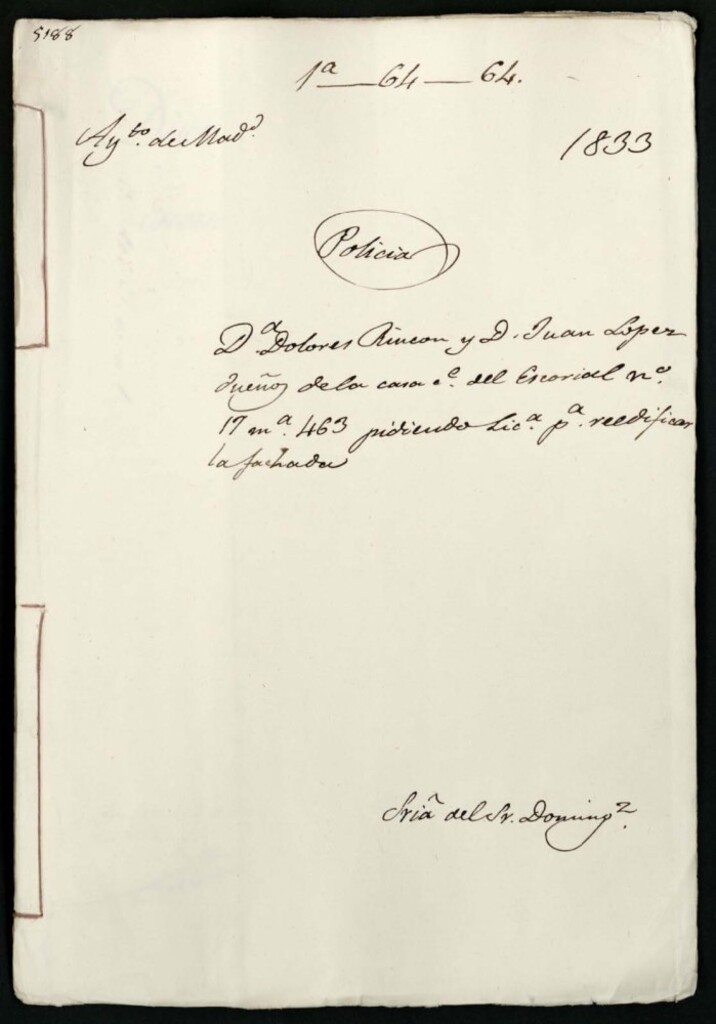 5188
1ª — 64 — 64.
Ayto. de Madd.
1833
Policia
Dª Dolores Rincon y D. Juan Lopez
dueños de la casa c.e del Escorial nº.
17 mª. 463 pidiendo Licª. pª. reedificar
la fachada
Sriª del Sr. Domingz.